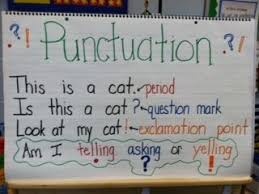 ? ! Punctuation ? !
This is a cat. ← period
Is this a cat? ← question mark
Look at my cat! ← exclamation point
Am I telling. asking? or yelling!